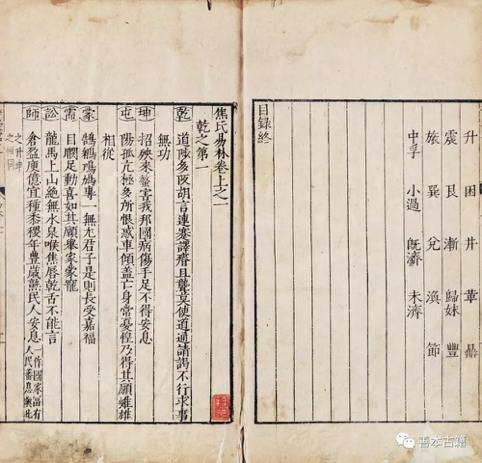 升 困 井 革 鼎
震 艮 漸 歸妹 豐
旅 巽 兌 渙 節
中孚 小過 旣濟 未濟
目錄終
焦氏易林卷上之一
乾之第一
乾 道陟多阪胡言連蹇譯瘖且聾莫使道通請謁不行求事
無功
坤 招殃來螫害我邦國病傷手足不得安息
屯 陽孤亢極多所恨惑車傾蓋亡身常憂惶乃得其願雌雄
相從
蒙 鵠鵴鳲鳩專一無尤君子是則長受嘉福
需 目瞤足動喜如其願舉家蒙寵
訟 龍馬上山絕無水泉喉焦唇乾舌不能言
師 倉盈庾億宜種黍稷年豐歲熟民人安息 一作國家富有
人民蕃息
善本古籍